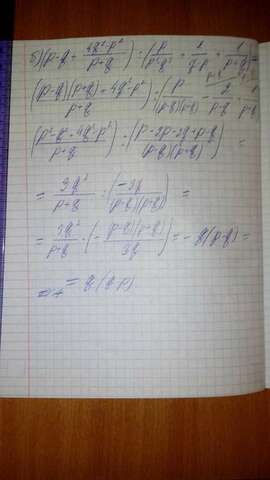 5) (p-q + 4q²-p²/p+q) : (p/p²-q² + 2/q-p + 1/p+q) =
((p-q)(p+q)+4q²-p²/p+q) : (p/(p-q)(p+q) - 2/p-q
(p²-q²+4q²-p²/p+q) : (p-2p-2q+p-q/(p-q)(p+q)) =
= 3q²/p+q : (-3q/(p-q)(p+q)) =
= 3q²/p+q · (-(p-q)(p+q)/3q) = -q(p-q) =
= q(q-p)